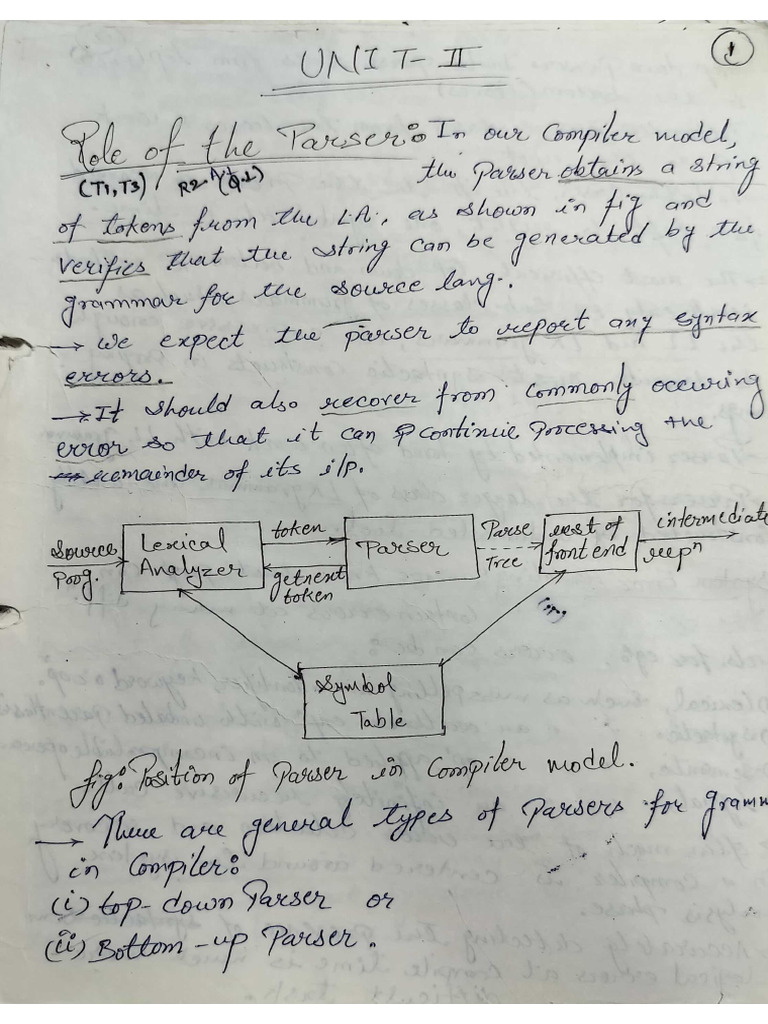 1
UNIT-II
Role of the Parser: In our Compiler model,
(T1, T3) the Parser obtains a string
of tokens from the L.A., as shown in fig and
verifies that the string can be generated by the
grammar for the source lang.
→ We expect the parser to report any syntax
errors.
→ It should also recover from commonly occuring
error so that it can continue Processing the
remainder of its i/p.
Source
Prog.
Lexical
Analyzer
token
getnext
token
Parser
Parse
Tree
rest of
front end
intermediate
repⁿ
Symbol
Table
fig: Position of Parser in Compiler model.
→ There are general types of Parsers for Gramm
in Compiler:
(i) top-down Parser or
(ii) Bottom-up Parser.